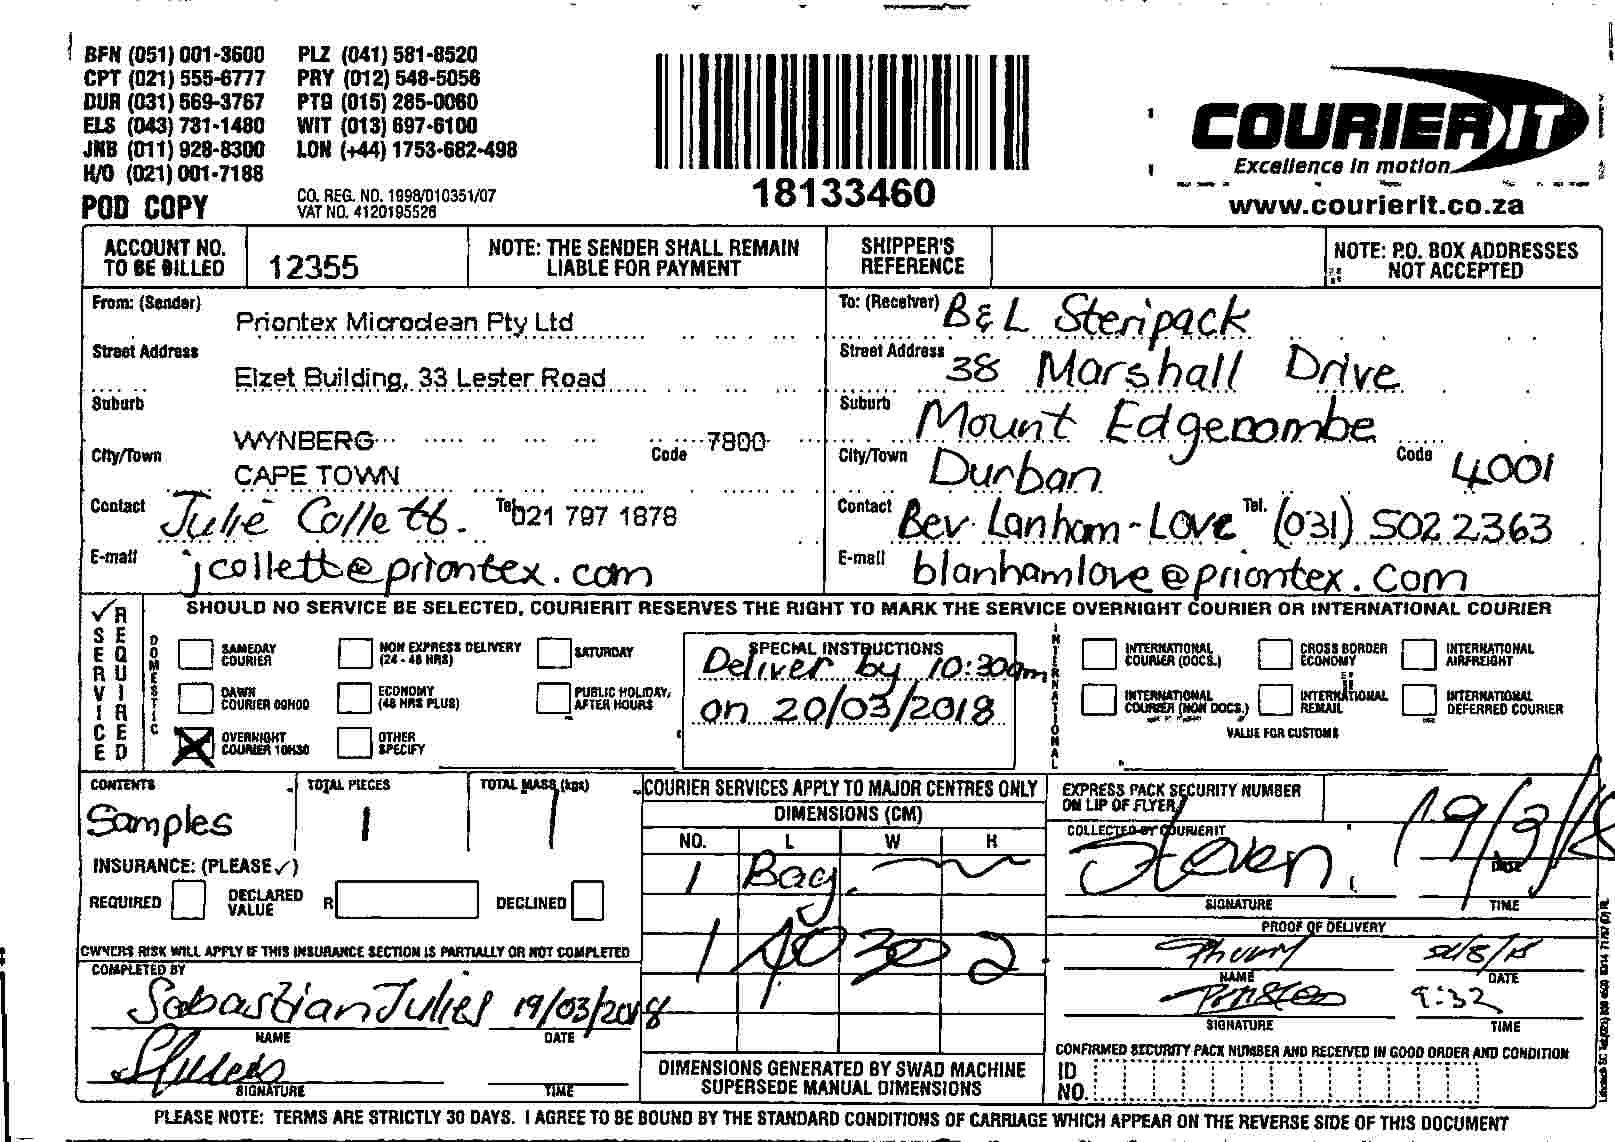 BFN (051) 001-3600 PLZ (041) 581-8520
CPT (021) 555-6777 PRY (012) 548-5056
DUR (031) 569-3767 PTG (015) 285-0060
ELS (043) 731-1480 WIT (013) 697-6100
JNB (011) 928-8300 LON (+44) 1753-682-498
H/O (021) 001-7188
POD COPY
CO. REG. NO. 1998/010351/07
VAT NO. 4120195526
18133460
COURIER IT
Excellence in motion
www.courierit.co.za
ACCOUNT NO. TO BE BILLED 12355
NOTE: THE SENDER SHALL REMAIN LIABLE FOR PAYMENT
SHIPPER'S REFERENCE
NOTE: P.O. BOX ADDRESSES NOT ACCEPTED
From: (Sender) Priontex Microclean Pty Ltd
Street Address Elzet Building, 33 Lester Road
Suburb WYNBERG
Code 7800
City/Town CAPE TOWN
Contact Julie Collett. Tel. 021 797 1878
E-mail jcollett@priontex.com
To: (Receiver) B&L Steripack
Street Address 38 Marshall Drive
Suburb Mount Edgecombe
City/Town Durban Code 4001
Contact Bev Lanham-Love Tel. (031) 502 2363
E-mail blanhamlove@priontex.com
✓ SERVICE REQUIRED
SHOULD NO SERVICE BE SELECTED, COURIERIT RESERVES THE RIGHT TO MARK THE SERVICE OVERNIGHT COURIER OR INTERNATIONAL COURIER
DOMESTIC
SAMEDAY COURIER
NON EXPRESS DELIVERY (24 - 48 HRS)
SATURDAY
DAWN COURIER 09H00
ECONOMY (48 HRS PLUS)
PUBLIC HOLIDAY, AFTER HOURS
OVERNIGHT COURIER 10H30
OTHER SPECIFY
SPECIAL INSTRUCTIONS
Deliver by 10:30am
on 20/03/2018
INTERNATIONAL
INTERNATIONAL COURIER (DOCS.)
CROSS BORDER ECONOMY
INTERNATIONAL AIRFREIGHT
INTERNATIONAL COURIER (NON DOCS.)
INTERNATIONAL REMAIL
INTERNATIONAL DEFERRED COURIER
VALUE FOR CUSTOMS
CONTENTS Samples
TOTAL PIECES 1
TOTAL MASS (kgs) 1
INSURANCE: (PLEASE ✓)
REQUIRED DECLARED VALUE R DECLINED
OWNERS RISK WILL APPLY IF THIS INSURANCE SECTION IS PARTIALLY OR NOT COMPLETED
COMPLETED BY
Sabastian Julies 19/03/2018
NAME DATE
SIGNATURE TIME
COURIER SERVICES APPLY TO MAJOR CENTRES ONLY
DIMENSIONS (CM)
NO. L W H
1 Bag.
1 40 30 2
DIMENSIONS GENERATED BY SWAD MACHINE SUPERSEDE MANUAL DIMENSIONS
EXPRESS PACK SECURITY NUMBER ON LIP OF FLYER
COLLECTED BY COURIERIT
Steven 19/3/18
DATE
SIGNATURE TIME
PROOF OF DELIVERY
NAME DATE
9:32
SIGNATURE TIME
CONFIRMED SECURITY PACK NUMBER AND RECEIVED IN GOOD ORDER AND CONDITION
ID NO.
PLEASE NOTE: TERMS ARE STRICTLY 30 DAYS. I AGREE TO BE BOUND BY THE STANDARD CONDITIONS OF CARRIAGE WHICH APPEAR ON THE REVERSE SIDE OF THIS DOCUMENT